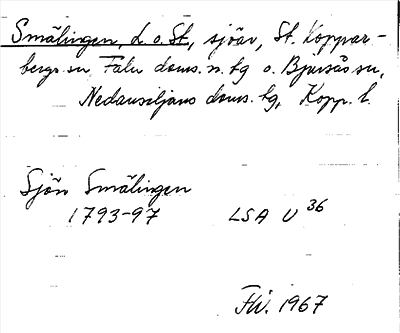 Smälingen, L. o. St, sjöar, St. Koppar-
bergs sn, Falu doms. n. tg o. Bjursås sn,
Nedansiljans doms. tg, Kopp. l.
Sjön Smälingen
1793-97 LSA U 36
1967